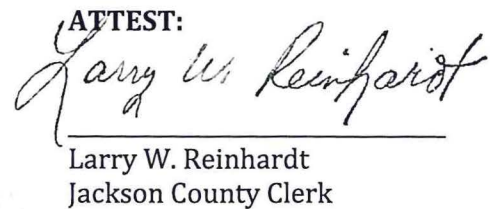 ATTEST:
Larry W. Reinhardt
Larry W. Reinhardt
Jackson County Clerk